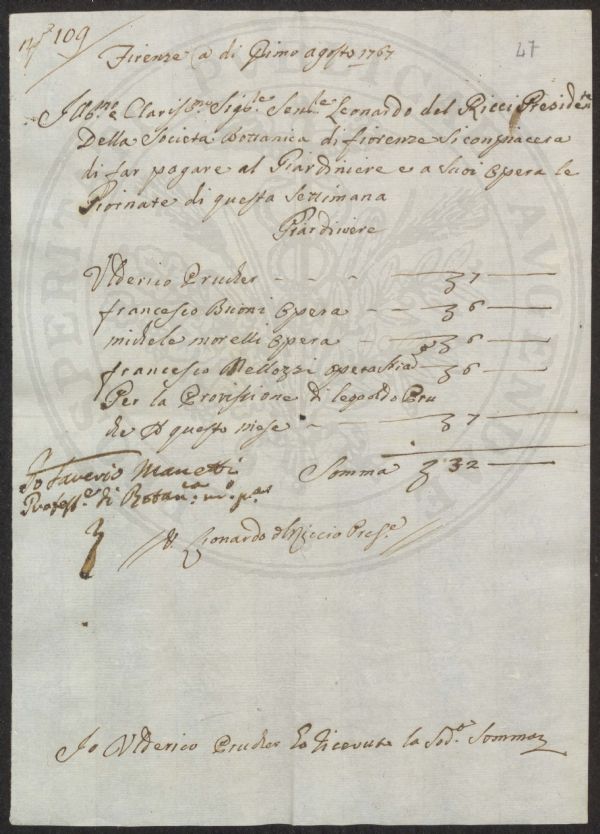 N.º 109
47
Firenze a dì Primo agosto 1767
Ill.mo e Clariss.mo Sig.re Sen.re Leonardo del Ricci Preside.te
Della Societa Bottanica di fiorenze si conpiacera
di far pagare al Giardiniere e a suoi opera le
Giornate di questa Settimana
Giardiniere
Ulderico Prucher - - - 7
francesco Buoni opera - - 6
michele morelli opera - 6
francesco Mellozzi opera 6
Per la Provisione di leopoldo Pru
cher di questo mese - 7
Io Saverio Manetti Somma 32
Profess.e di Botan.ca
Lionardo del Riccio Pres.e
Io Ulderico Prucher ho ricevuto la Sod.a Somma